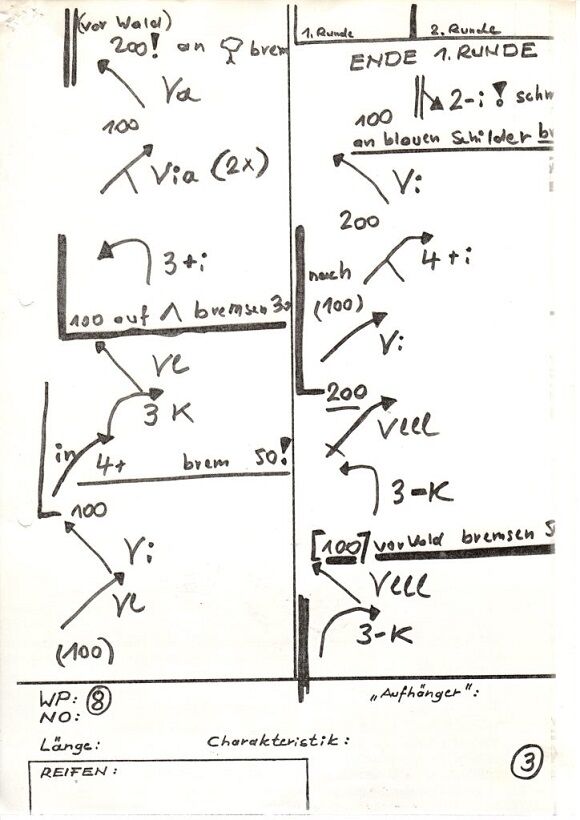 (vor Wald)
200! an brem
Va
100
Via (2x)
3+i
100 auf bremsen 30
Vl
3 K
in 4+ brem 50!
100
Vi
Vl
(100)
1. Runde
2. Runde
ENDE 1. RUNDE
2-i! schn
100
an blauen Schilder br
Vi
200
4+i
nach
(100)
Vi
200
Vlll
3-K
[100] vor Wald bremsen 5
Vlll
3-K
WP: 8
NO:
„Aufhänger":
Länge:
Charakteristik:
REIFEN:
3